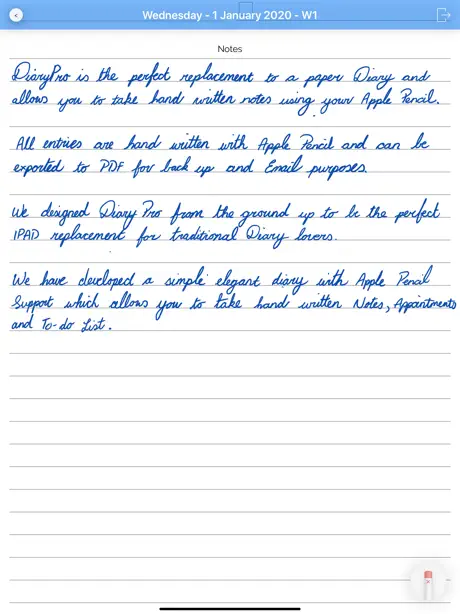 Wednesday - 1 January 2020 - W1
Notes
DiaryPro is the perfect replacement to a paper Diary and
allows you to take hand written notes using your Apple Pencil.
All entries are hand written with Apple Pencil and can be
exported to PDF for back up and Email purposes.
We designed Diary Pro from the ground up to be the perfect
IPAD replacement for traditional Diary lovers.
We have developed a simple elegant diary with Apple Pencil
Support which allows you to take hand written Notes, Appointments
and To-do List.